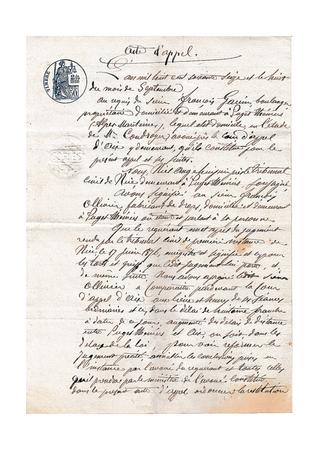 Acte d'appel.
L'an mil huit cent soixante seize et le huit
du mois de Septembre
au requis du sieur François Gazin boulanger
propriétaire domicilié et demeurant à Puget Théniers
(Alpes Maritimes), lequel élit domicile en l'étude
de Me avoué près la Cour d'appel
d'Aix y demeurant, qu'il constitue pour le
présent appel et ses suites.
Nous, huissier près le Tribunal
civil de Nice demeurant à Puget Théniers soussigné
Avons signifié au sieur
Ollivier, fabricant de draps, domicilié et demeurant
à Puget Théniers où étant et parlant à sa personne
Que le requérant est appel du jugement
rendu par le tribunal civil de première instance de
Nice le 17 juin 1876, enregistré et signifié et ce pour
les torts et griefs
de même suite Nous avons assigné ledit sieur
Ollivier à comparaître pardevant la Cour
d'appel d'Aix aux lieu et heures de ses séances
ordinaires et ce, dans le délai de huitaine franche
à dater de ce jour, augmenté des délais de distance
entre Puget Théniers et Aix, ou soit dans les
délais de la loi, pour voir réformer le
jugement précité, les conclusions prises en
1ère instance par l'avoué du requérant et toutes celles
qu'il prendra par le ministère de l'avoué constitué
dans le présent acte d'appel, ordonner la restitution